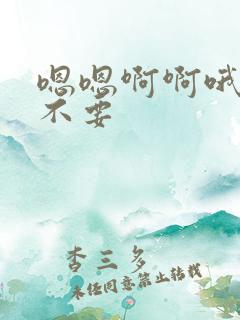 嗯嗯啊啊哦
不要
杳三多
未经同意禁止转载